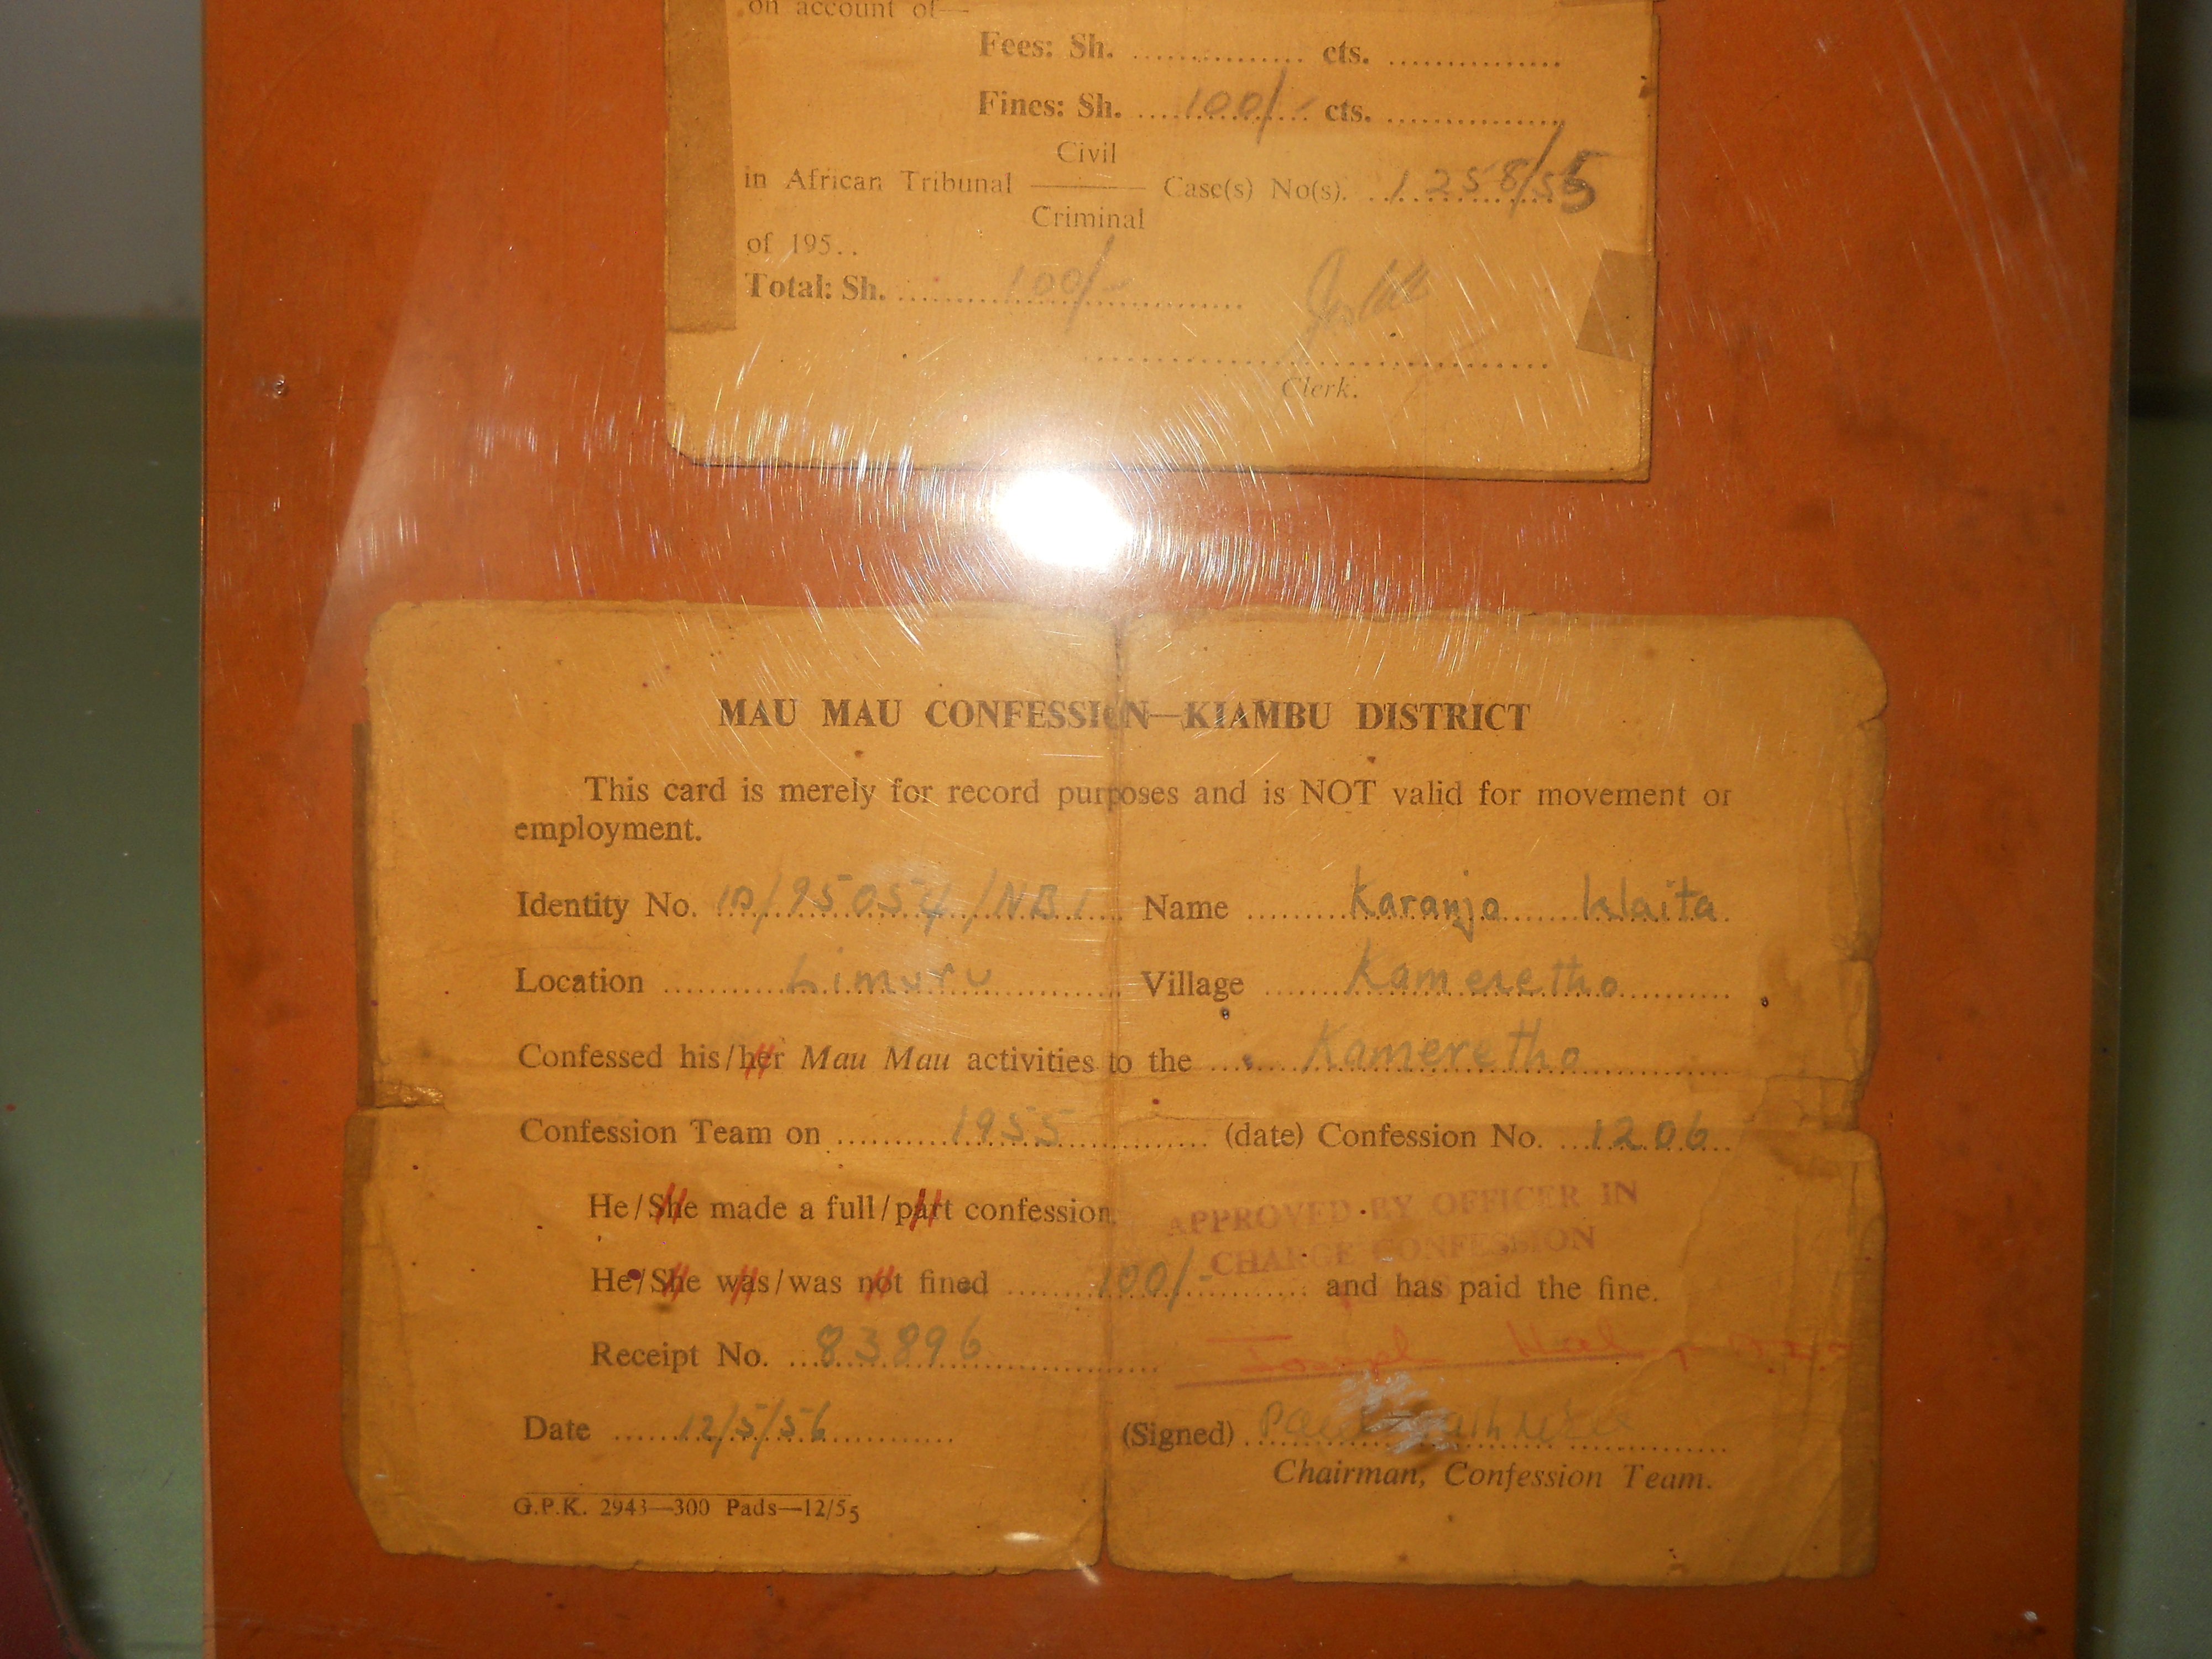 on account of—
Fees: Sh. ............... cts. ...............
Fines: Sh. ....100/-.... cts. ...............
Civil
in African Tribunal ——— Case(s) No(s). .1258/55
Criminal
of 195..
Total: Sh. ........100/-............
Clerk.
MAU MAU CONFESSION—KIAMBU DISTRICT
This card is merely for record purposes and is NOT valid for movement or
employment.
Identity No. 10/95054/NBI Name ........Karanja Waita.
Location .........Limuru......... Village .......Kameretho.......
Confessed his/her Mau Mau activities to the .......Kameretho.......
Confession Team on .........1955......... (date) Confession No. ..1206..
He/She made a full/part confession.
APPROVED BY OFFICER IN
CHARGE CONFESSION
He/She was/was not fined .......100/-....... and has paid the fine.
Receipt No. ..83896...........
Date ......12/5/56.........
(Signed) Paul
Chairman, Confession Team.
G.P.K. 2943—300 Pads—12/55